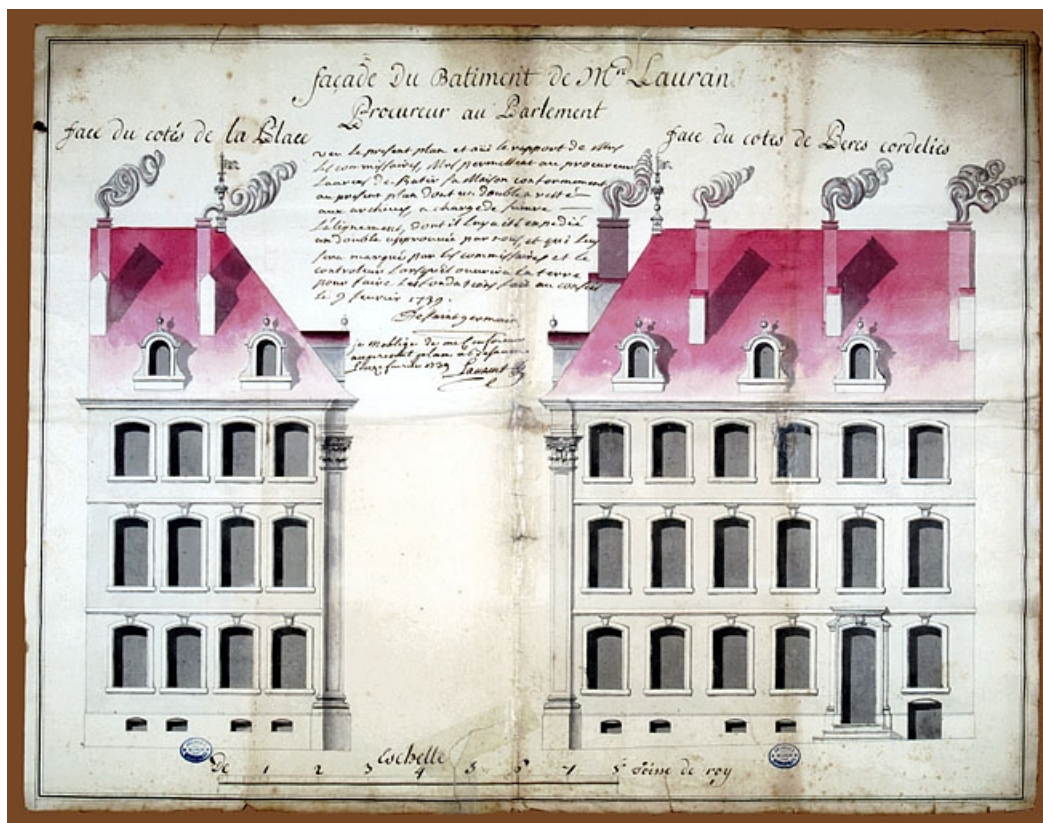 façade du Batiment de Mr Lauran
Procureur au Parlement
face du cotés de la Place
face du cotes de Peres cordeliés
Veu le present plan et oüi le rapport de Mrs
les commissaires, Mrs permettent au procureur
Laurent de Batir sa Maison conformement
au present plan dont un double a resté
aux archives, a charge de suivre
l'alignement, dont il luy a été expedié
un double approuvé par nous, et qui luy
sera marqué par les commissaires et le
controleur lorsqu'il ouvrira la terre
pour faire les fondations fait au conseil
le 9 fevrier 1739.
De Saint germain
je moblige de me Conformer
au present plan a Besancon
fevrier 1739 Laurent
Eschelle
De 1 2 3 4 5 6 7 8 Toise de roy